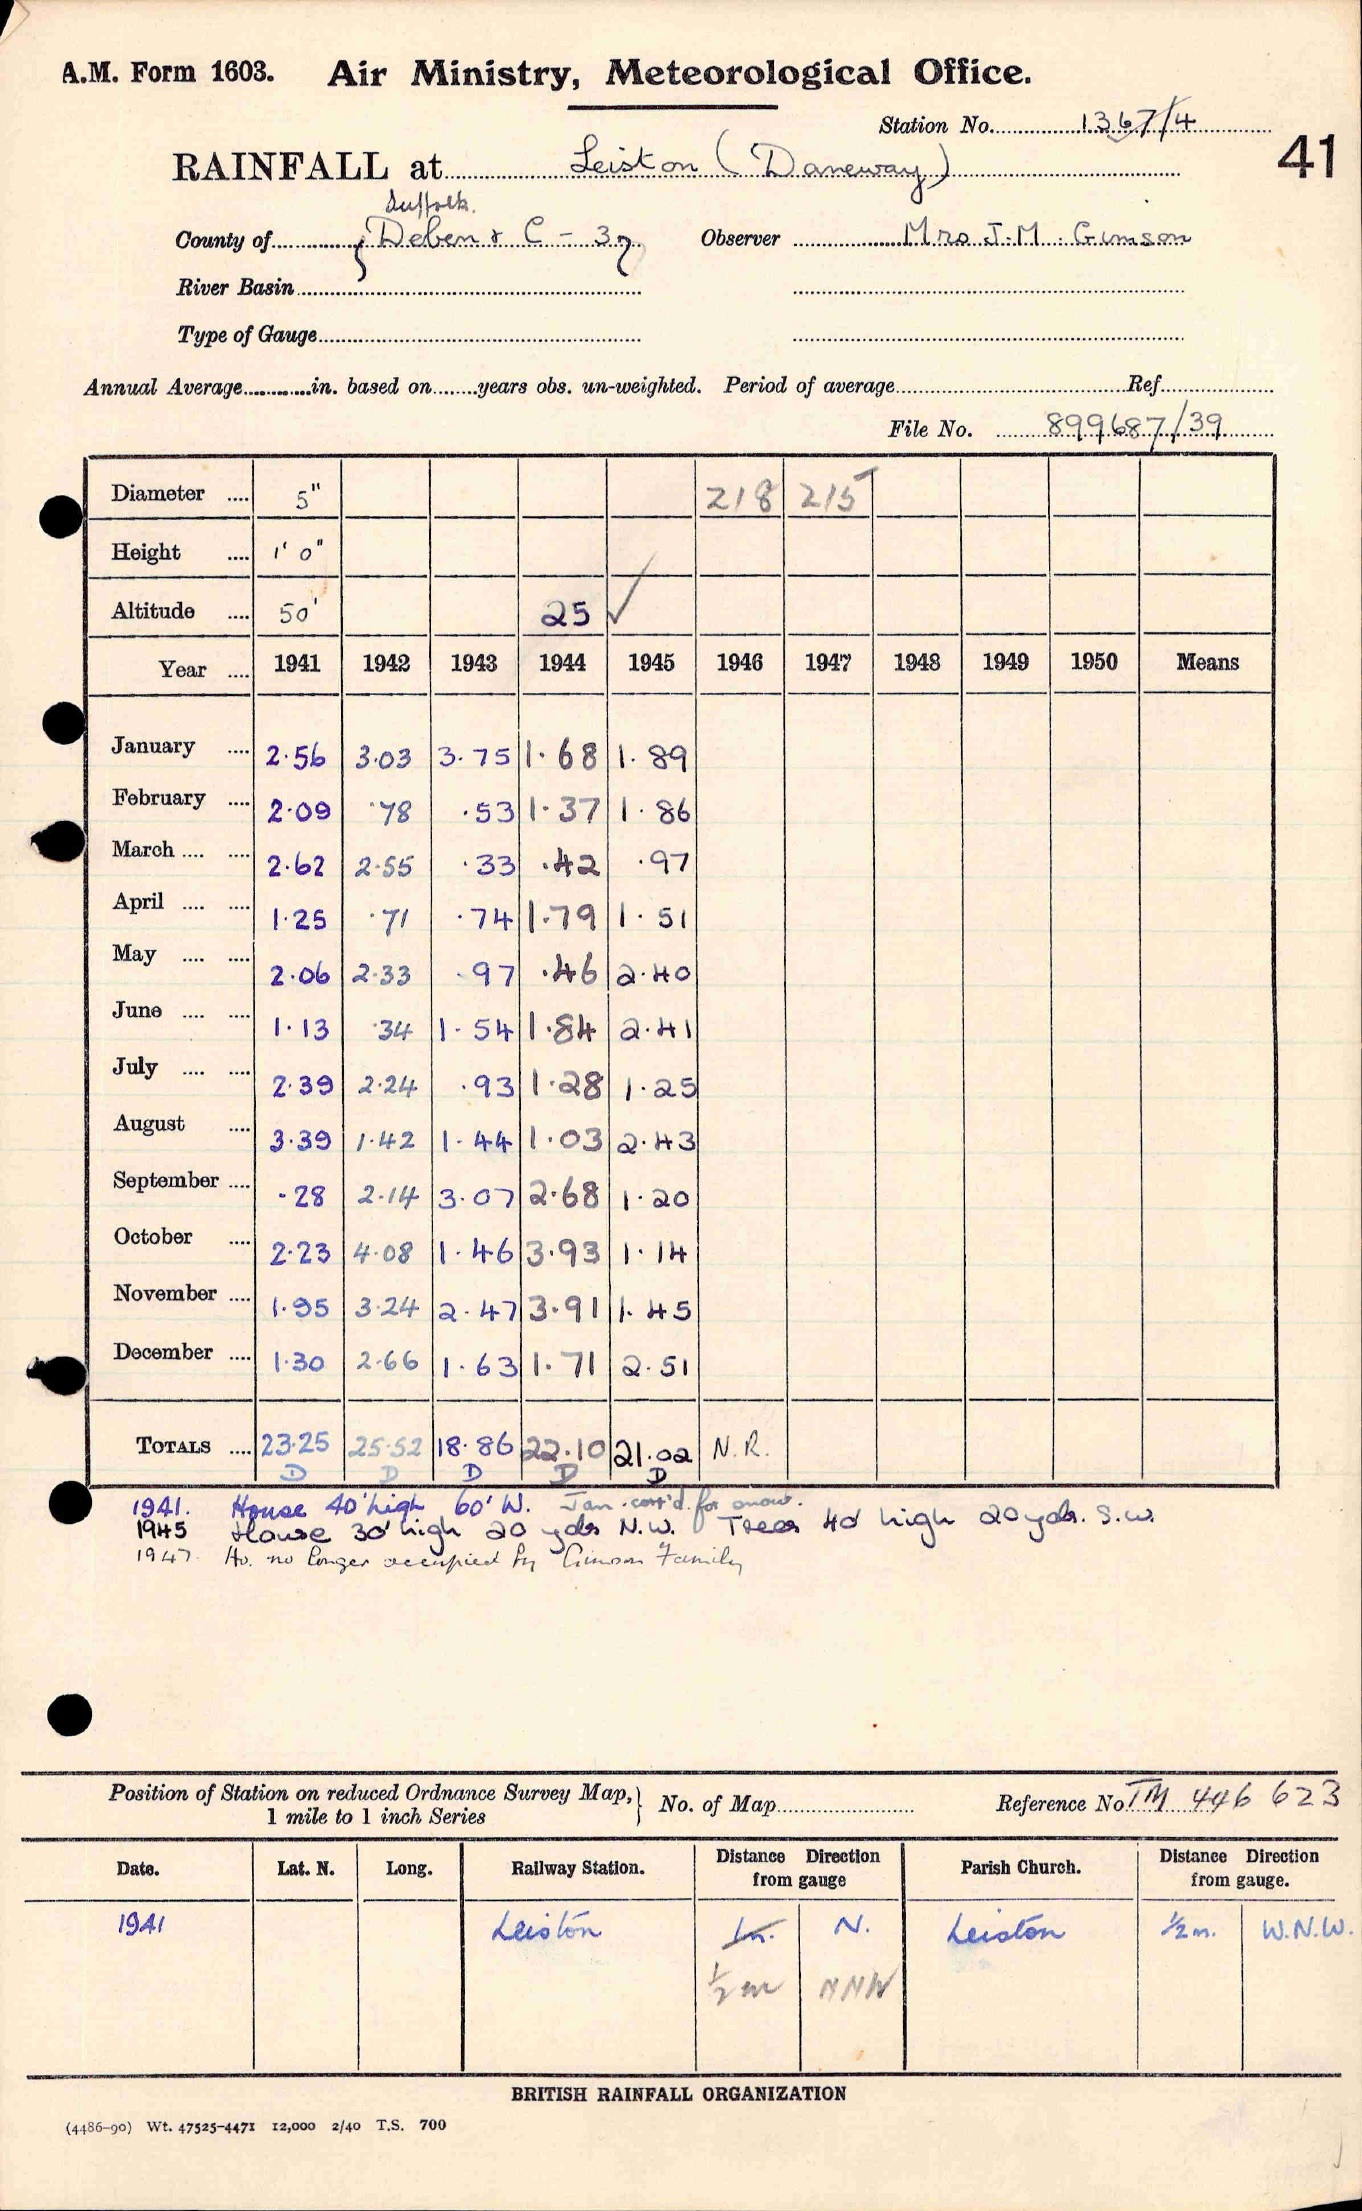 A.M. Form 1603. Air Ministry, Meteorological Office.
Station No. 1367/4
41
RAINFALL at Leiston (Daneway)
Suffolk.
County of Deben & C - 37 Observer Mrs J.M. Gimson
River Basin
Type of Gauge
Annual Average in. based on years obs. un-weighted. Period of average Ref.
File No. 899687/39
Diameter 5" 218 215
Height 1' 0"
Altitude 50' 25 ✓
Year 1941 1942 1943 1944 1945 1946 1947 1948 1949 1950 Means
January 2.56 3.03 3.75 1.68 1.89
February 2.09 .78 .53 1.37 1.86
March 2.62 2.55 .33 .42 .97
April 1.25 .71 .74 1.79 1.51
May 2.06 2.33 .97 .46 2.40
June 1.13 .34 1.54 1.84 2.41
July 2.39 2.24 .93 1.28 1.25
August 3.39 1.42 1.44 1.03 2.43
September .28 2.14 3.07 2.68 1.20
October 2.23 4.08 1.46 3.93 1.14
November 1.95 3.24 2.47 3.91 1.45
December 1.30 2.66 1.63 1.71 2.51
TOTALS 23.25 25.52 18.86 22.10 21.02 N.R.
D D D D D
1941. House 40' high 60' W. Jan. cort'd. for snow.
1945 House 30' high 20 yds N.W. Trees 40' high 20 yds. S.W.
1947. Ho. no longer occupied by Gimson Family
Position of Station on reduced Ordnance Survey Map, 1 mile to 1 inch Series No. of Map Reference No TM 446 623
Date. Lat. N. Long. Railway Station. Distance Direction from gauge Parish Church. Distance Direction from gauge.
1941 Leiston 1m. N. Leiston ½ m. W.N.W.
½ m NNW
BRITISH RAINFALL ORGANIZATION
(4486-90) Wt. 47525-4471 12,000 2/40 T.S. 700